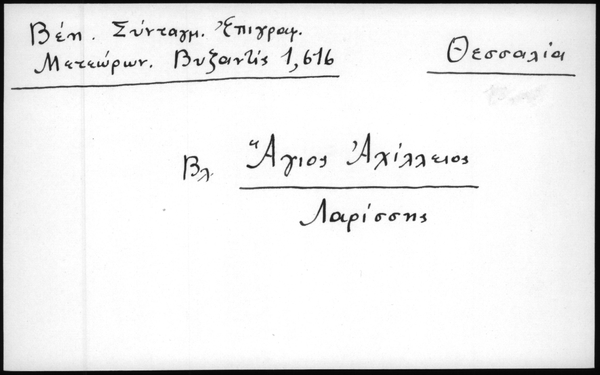 Βέη. Σύνταγμ. Ἐπιγραφ.
Μετεώρων. Βυζαντίς 1,616
Θεσσαλία
Βλ. Ἅγιος Ἀχίλλειος
Λαρίσσης